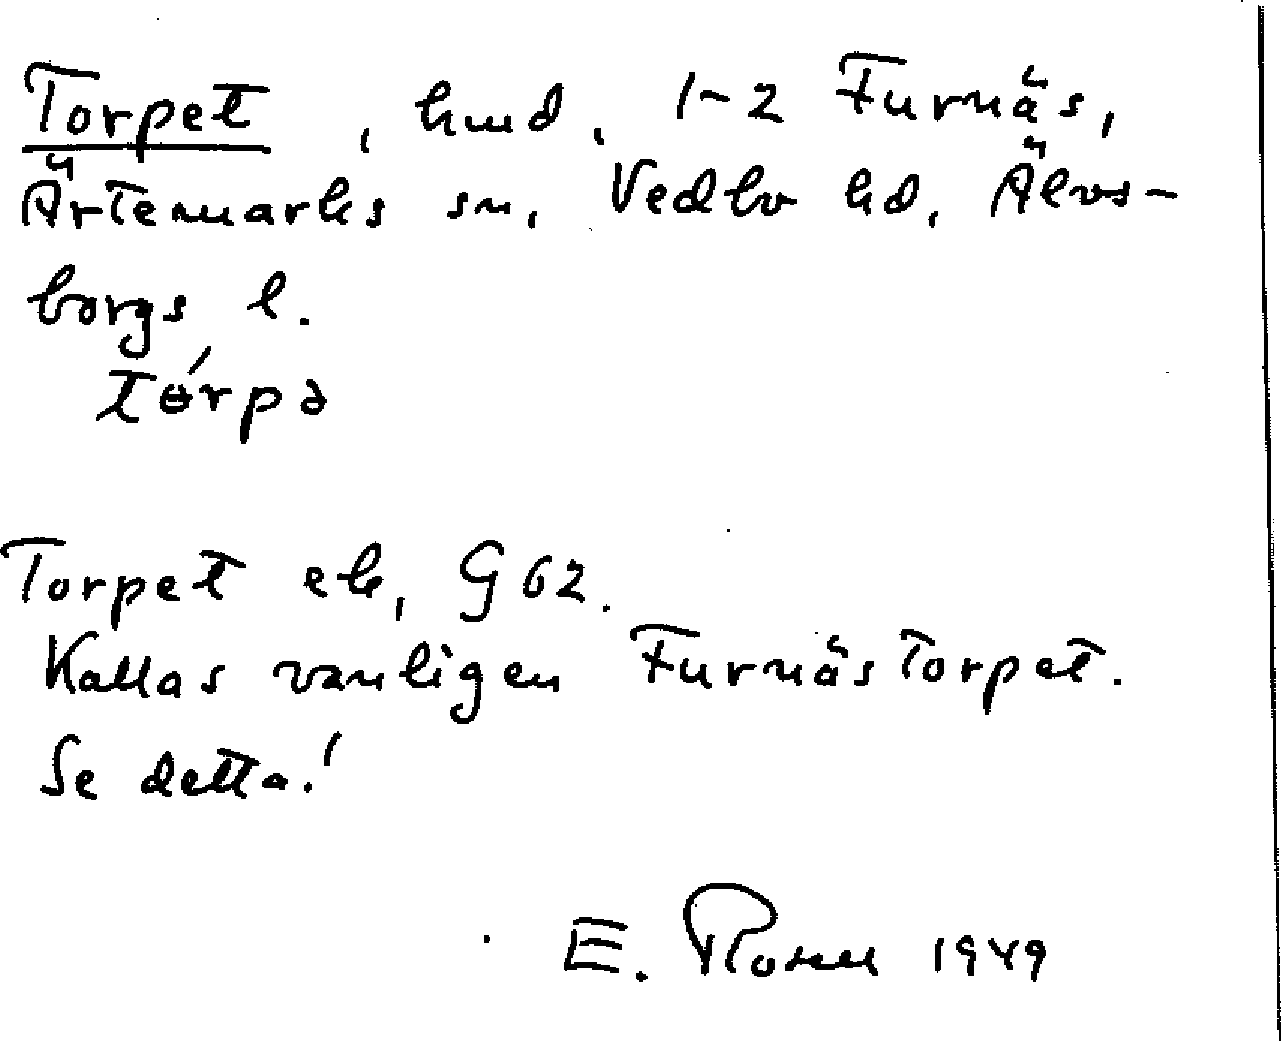 Torpet, hmd. 1-2 Furnäs,
Ärtemarks sn, Vedbo hd, Älvs-
borgs l.
tɵ́rpə
Torpet ek, G 62.
Kallas vanligen Furnästorpet.
Se detta!
E. 1949